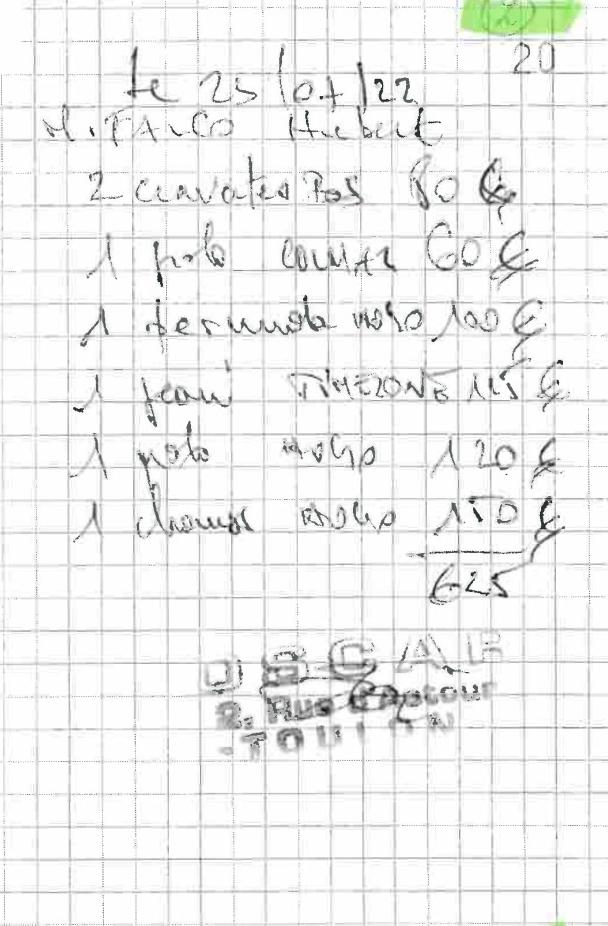 (2)
20
le 25/07/22
M. FALCO Hubert
2 cravates Bos 80 €
1 polo COLMAR 60 €
1 bermuda HUGO 100 €
1 jean TIMEZONE 115 €
1 polo HUGO 120 €
1 HUGO 150 €
625
OSCAR
2, Rue
TOULON